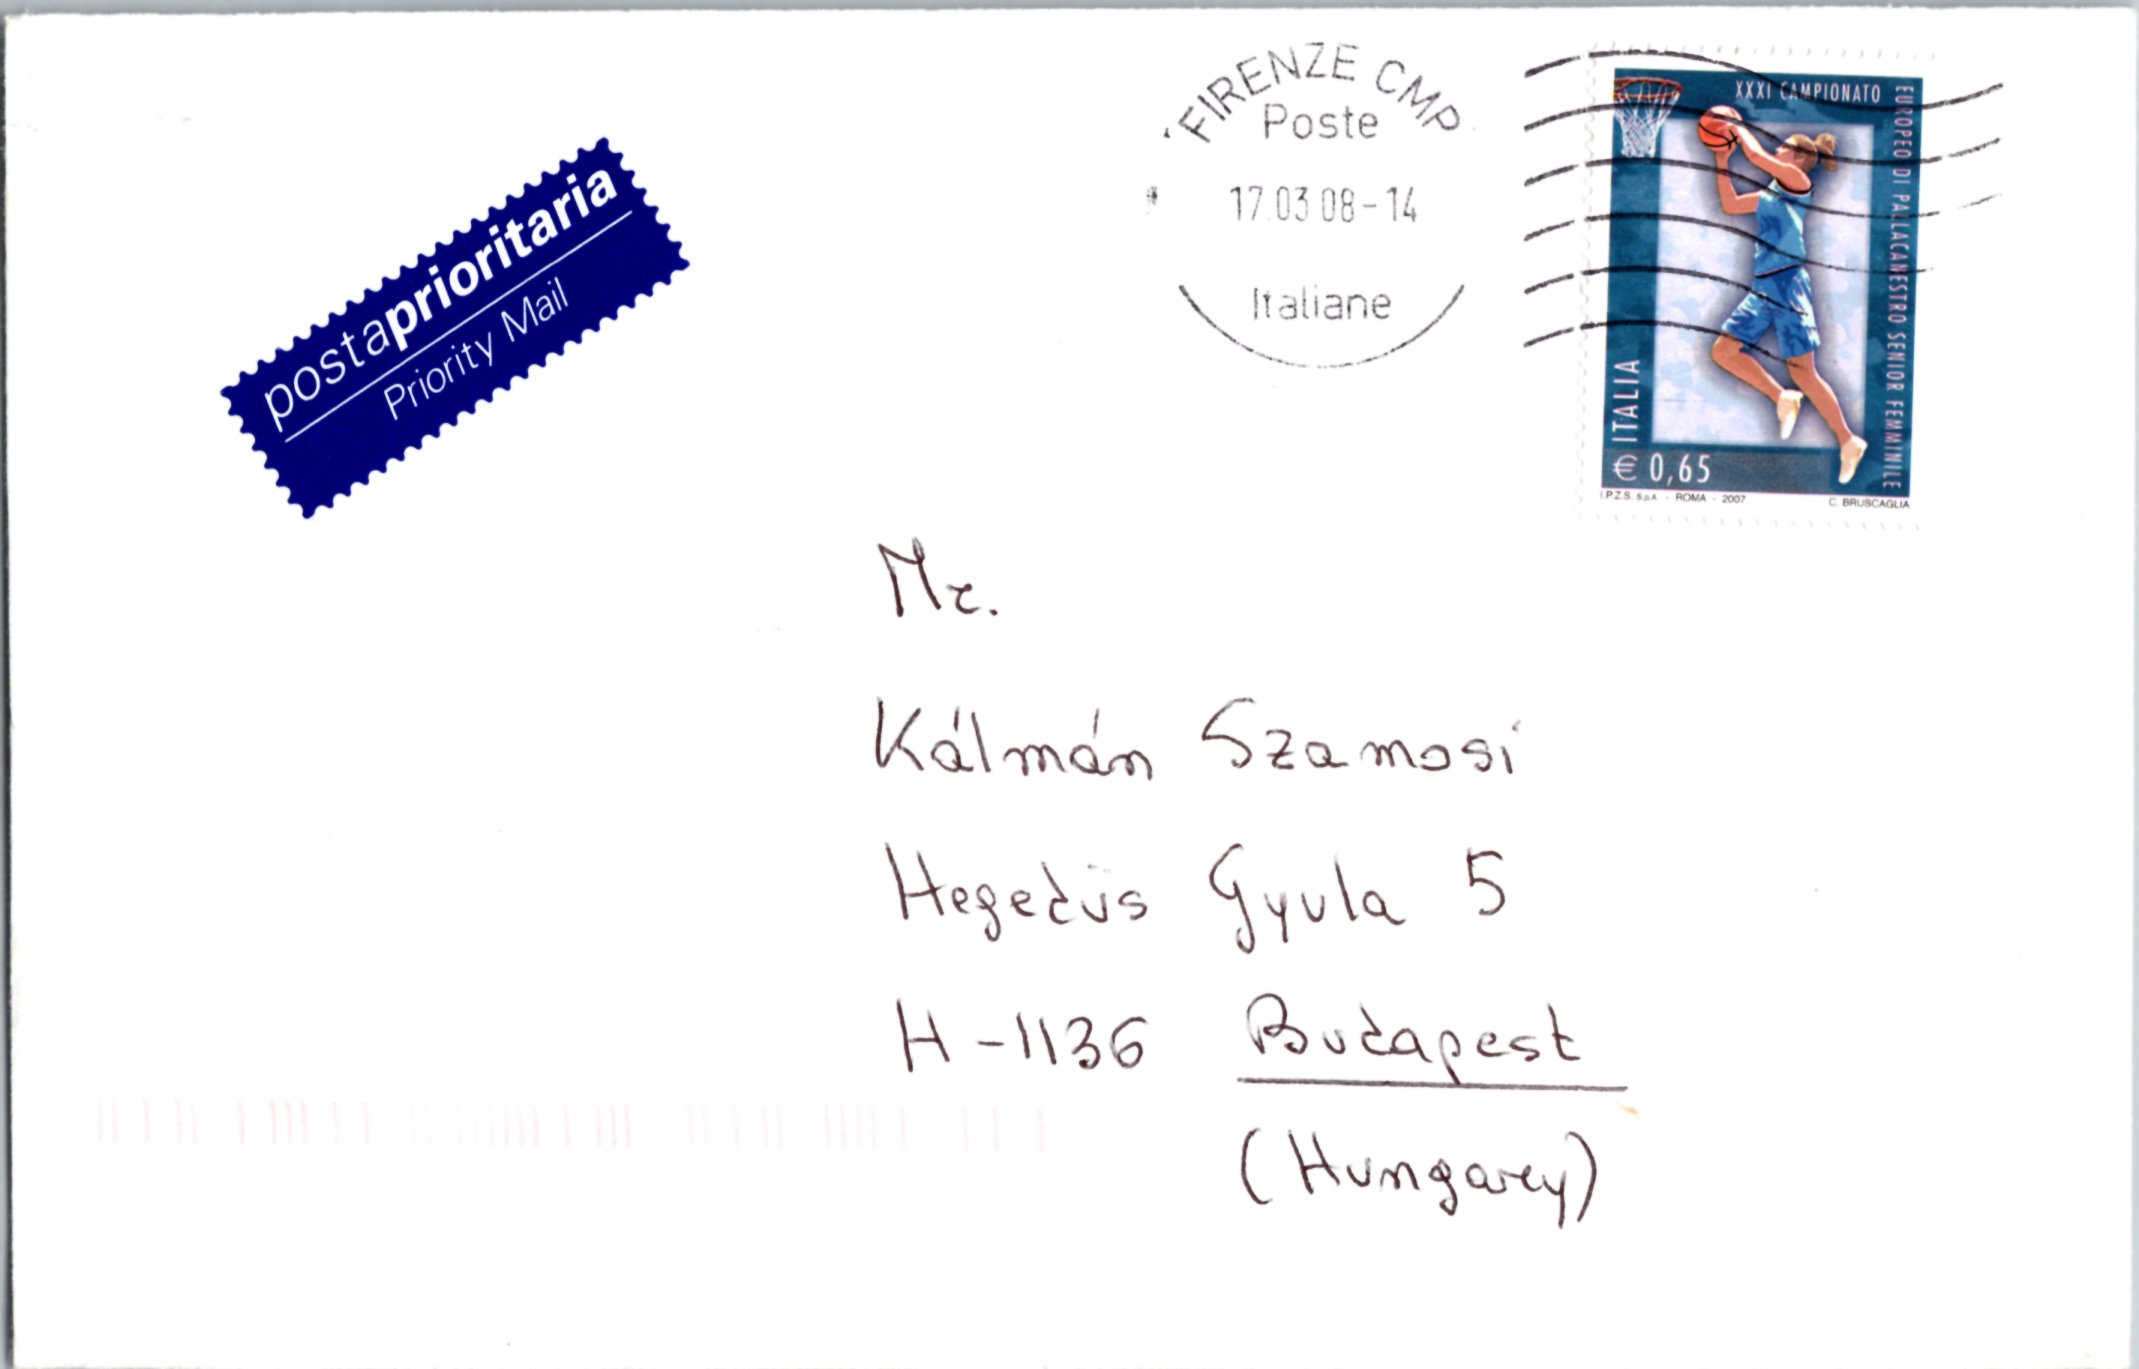 postaprioritaria
Priority Mail
FIRENZE CMP
Poste
17.03 08-14
Italiane
XXXI CAMPIONATO
EUROPEO DI PALLACANESTRO SENIOR FEMMINILE
ITALIA
€ 0,65
I.P.Z.S. S.p.A. - ROMA - 2007
C. BRUSCAGLIA
Mr.
Kálmán Szamosi
Hegedüs Gyula 5
H-1136 Budapest
(Hungarey)